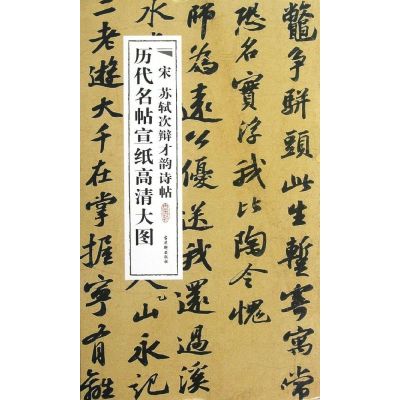 鼈争駢頭此生蹔寄寓常
恐名實浮我比陶令愧
師為遠公優送我還過溪
山永記
二老遊大千在掌握寧有離
宋 苏轼次辩才韵诗帖
历代名帖宣纸高清大图